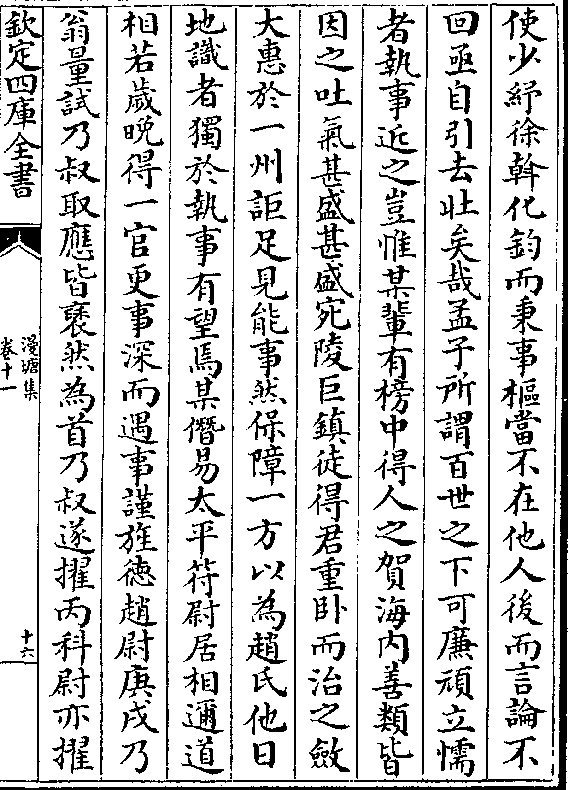 使少紓徐斡化鈞而秉事樞當不在他人後而言論不
回亟自引去壯矣哉孟子所謂百世之下可廉頑立懦
者執事近之豈惟某輩有榜中得人之賀海内善類皆
因之吐氣甚盛甚盛宛陵巨鎮徒得君重卧而治之斂
大惠於一州詎足見能事然保障一方以為趙氏他日
地識者獨於執事有望焉某僭易太平符尉居相邇道
相若歲晩得一官更事深而遇事謹旌徳趙尉庚戌乃
翁量試乃叔取應皆褎然為首乃叔遂擢丙科尉亦擢
欽定四庫全書
漫塘集
卷十一
十六